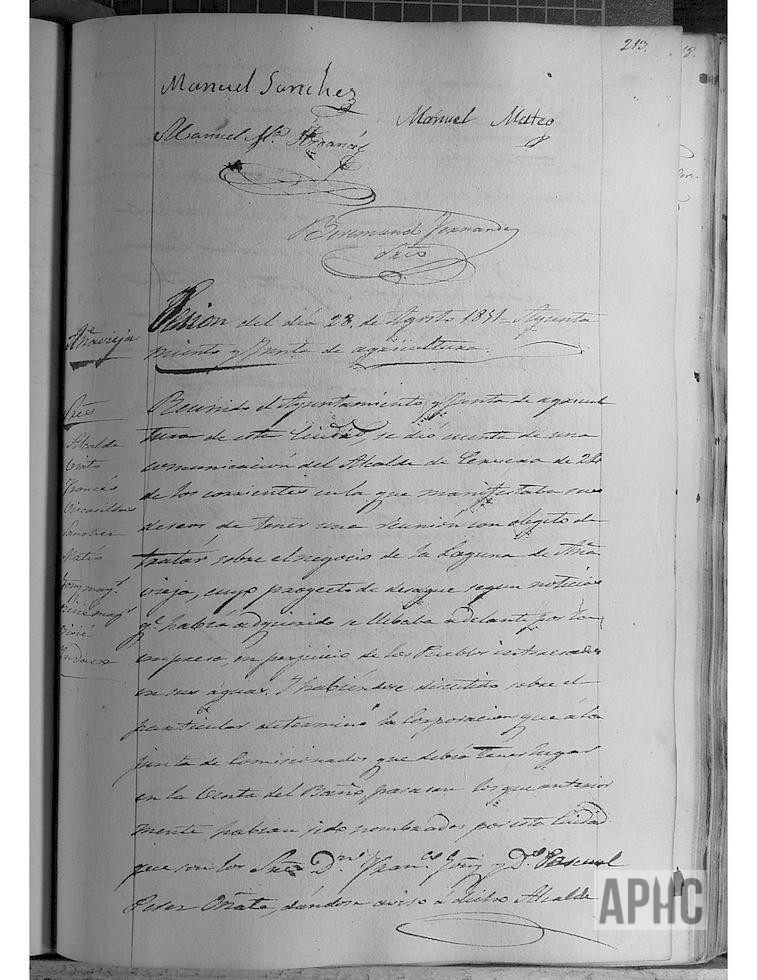 213.
Manuel Sanchez
Manuel Mateo
Manuel Mª
Beremund Fernandez
Srio
Sesion del dia 28 de Agosto 1851 Ayunta
miento y Junta de agricultura.
Añavieja
Sres
Alcalde
Francés
Sanchez
Mateo
Reunido el Ayuntamiento y Junta de agricul
tura de esta Ciudad se dió cuenta de una
comunicación del Alcalde de Cervera de 24
de los corrientes en la que manifestaba sus
deseos de tener una reunión con obgeto de
tratar sobre el negocio de la Laguna de Aña
vieja, cuyo proyecto de desague segun noticias
qe. habia adquirido se llebaba adelante por la
empresa en perjuicio de los Pueblos interesados
en sus aguas. Y habiéndose discutido sobre el
particular determinó la Corporacion que á la
junta de Comisionados que debia tener lugar
en la Venta del Baño pasasen los que anterior
mente habian sido nombrados por esta Ciudad
que son los Sres Dn. Franco. y Dn. Pascual
Perez Oñate, dándose aviso á dicho Alcalde
APHC